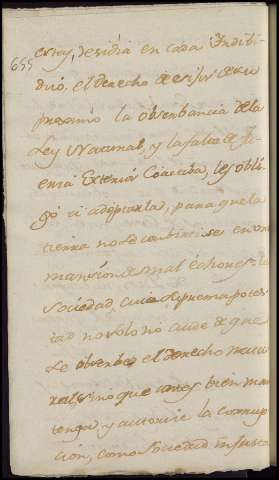 655
esrey, residia en cada Indibi-
duo, el derecho de exijir de su
proximo la obserbancia de la
Ley Natural, y la falta de fu
erza Exterior Coactiba, les obli-
gó á adoptarla, para que la
tierra no se combirtiese en una
mansion de mal échores. La
Sociedad, cuia Suprema potes-
tad no solo no cuide de que
se obserbe el derecho natu
ral, sino que antes bien man
tenga, y autorise la corrup
cion, como sociedad injusta